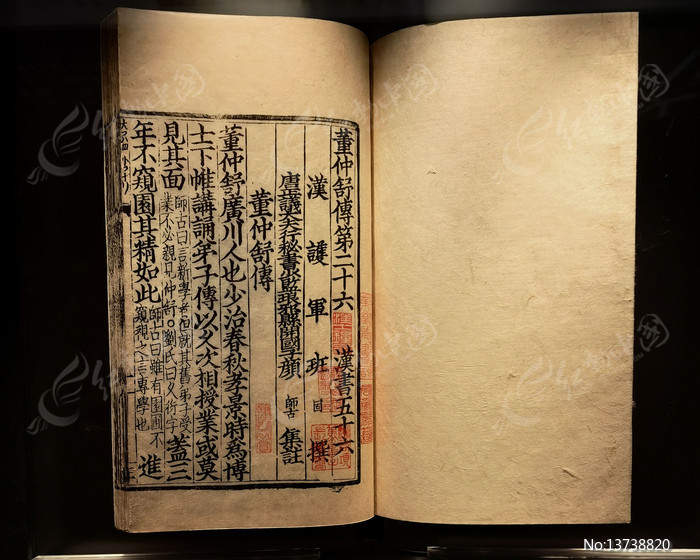 董仲舒傳第二十六 漢書五十六
漢護軍班固撰
唐議大夫行秘書監琅邪縣開國子顏師古集註
董仲舒傳
董仲舒廣川人也少治春秋孝景時為博
士下帷講誦弟子傳以久次相授業或莫
見其面師古曰言新學者但就其舊弟子受業不必親見仲舒。劉氏曰久衍字蓋三
年不窺園其精如此師古曰雖有園圃不窺視之言專學也進
No:13738820